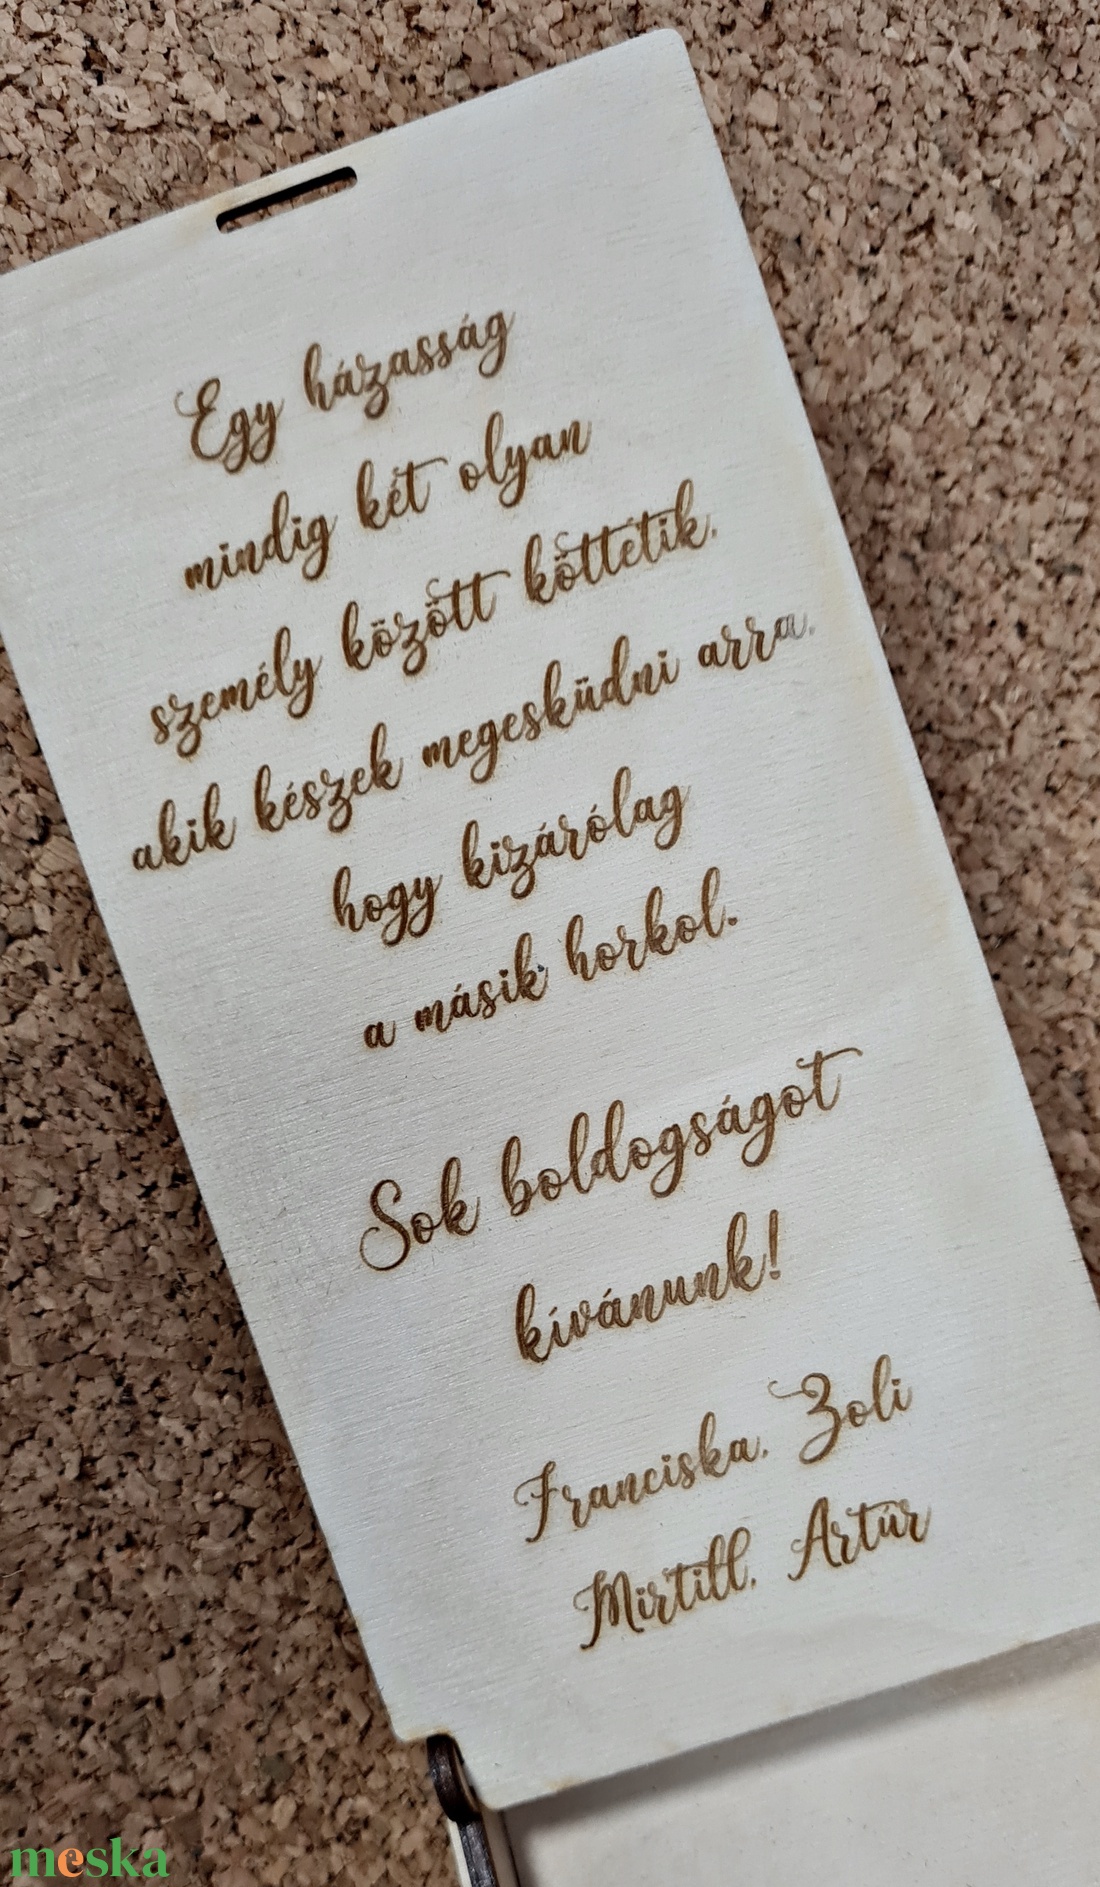 Egy házasság
mindig két olyan
személy között köttetik,
akik készek megesküdni arra,
hogy kizárólag
a másik horkol.
Sok boldogságot
kívánunk!
Franciska, Zoli
Mirtill, Artúr
meska